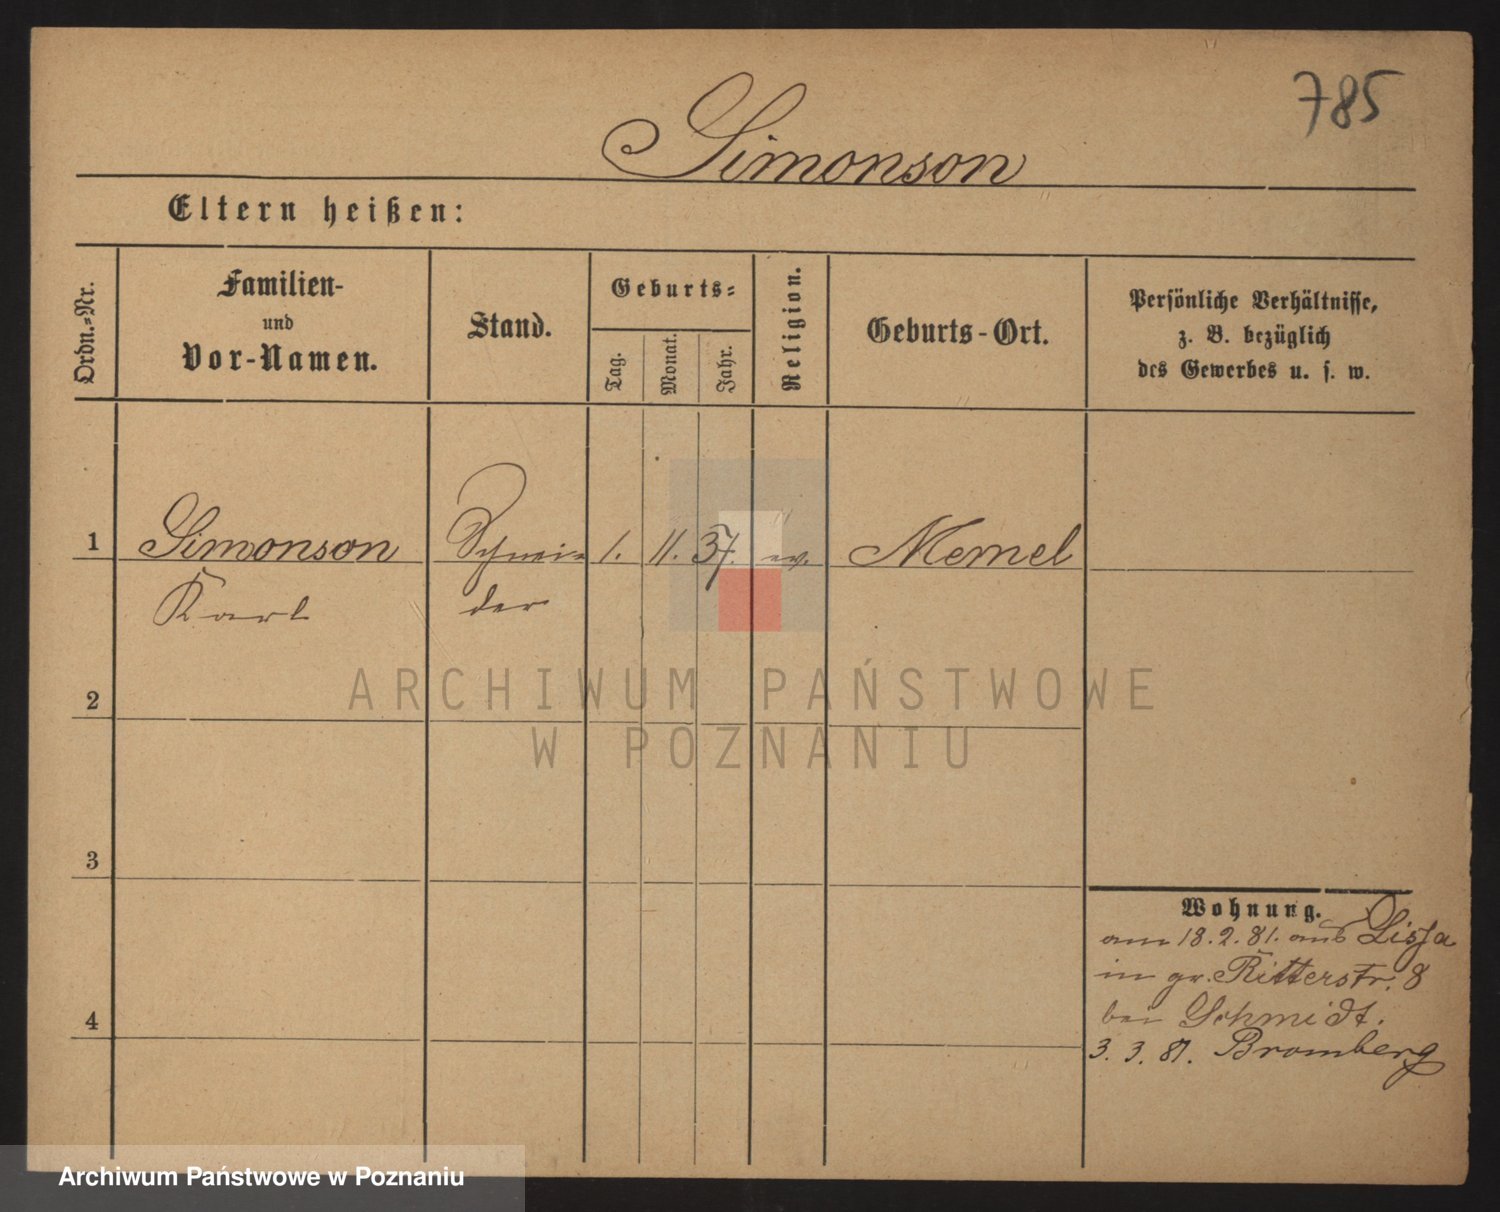 785
Simonson
Eltern heißen:
Ordn.-Nr.
Familien-
und
Vor-Namen.
Stand.
Geburts-
Tag.
Monat.
Jahr.
Religion.
Geburts-Ort.
Persönliche Verhältnisse,
z. B. bezüglich
des Gewerbes u. s. w.
1 Simonson Schnei- 1. 11. 37. ev. Memel
Karl der
2
3
4
Wohnung.
am 18.2.81. aus Lissa
in gr. Ritterstr. 8
bei Schmidt.
3. 3. 81. Bromberg
ARCHIWUM PAŃSTWOWE
W POZNANIU
Archiwum Państwowe w Poznaniu